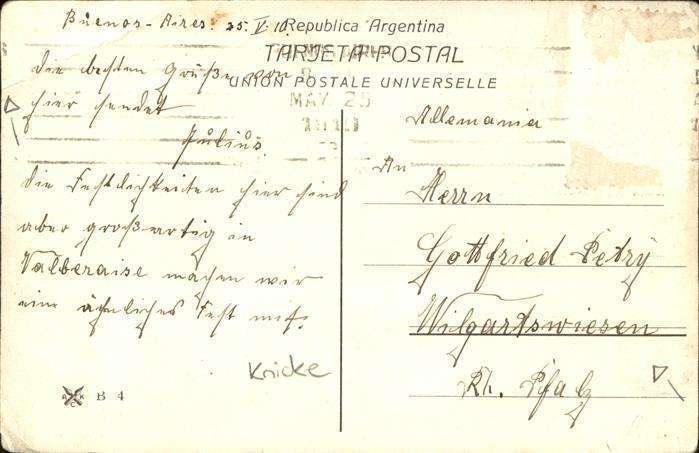 Buenos-Aires. 25. V. 10.
Republica Argentina
TARJETA POSTAL
UNION POSTALE UNIVERSELLE
die besten Grüße von
hier sendet
Julius.
MAY 25
die Festlichkeiten hier sind
aber großartig in
Valberaise machen wir
eine ähnliches Fest mit.
Allemania
An
Herrn
Gottfried Petry
Wilgartswiesen
Rh. Pfalz
Knicke
B 4